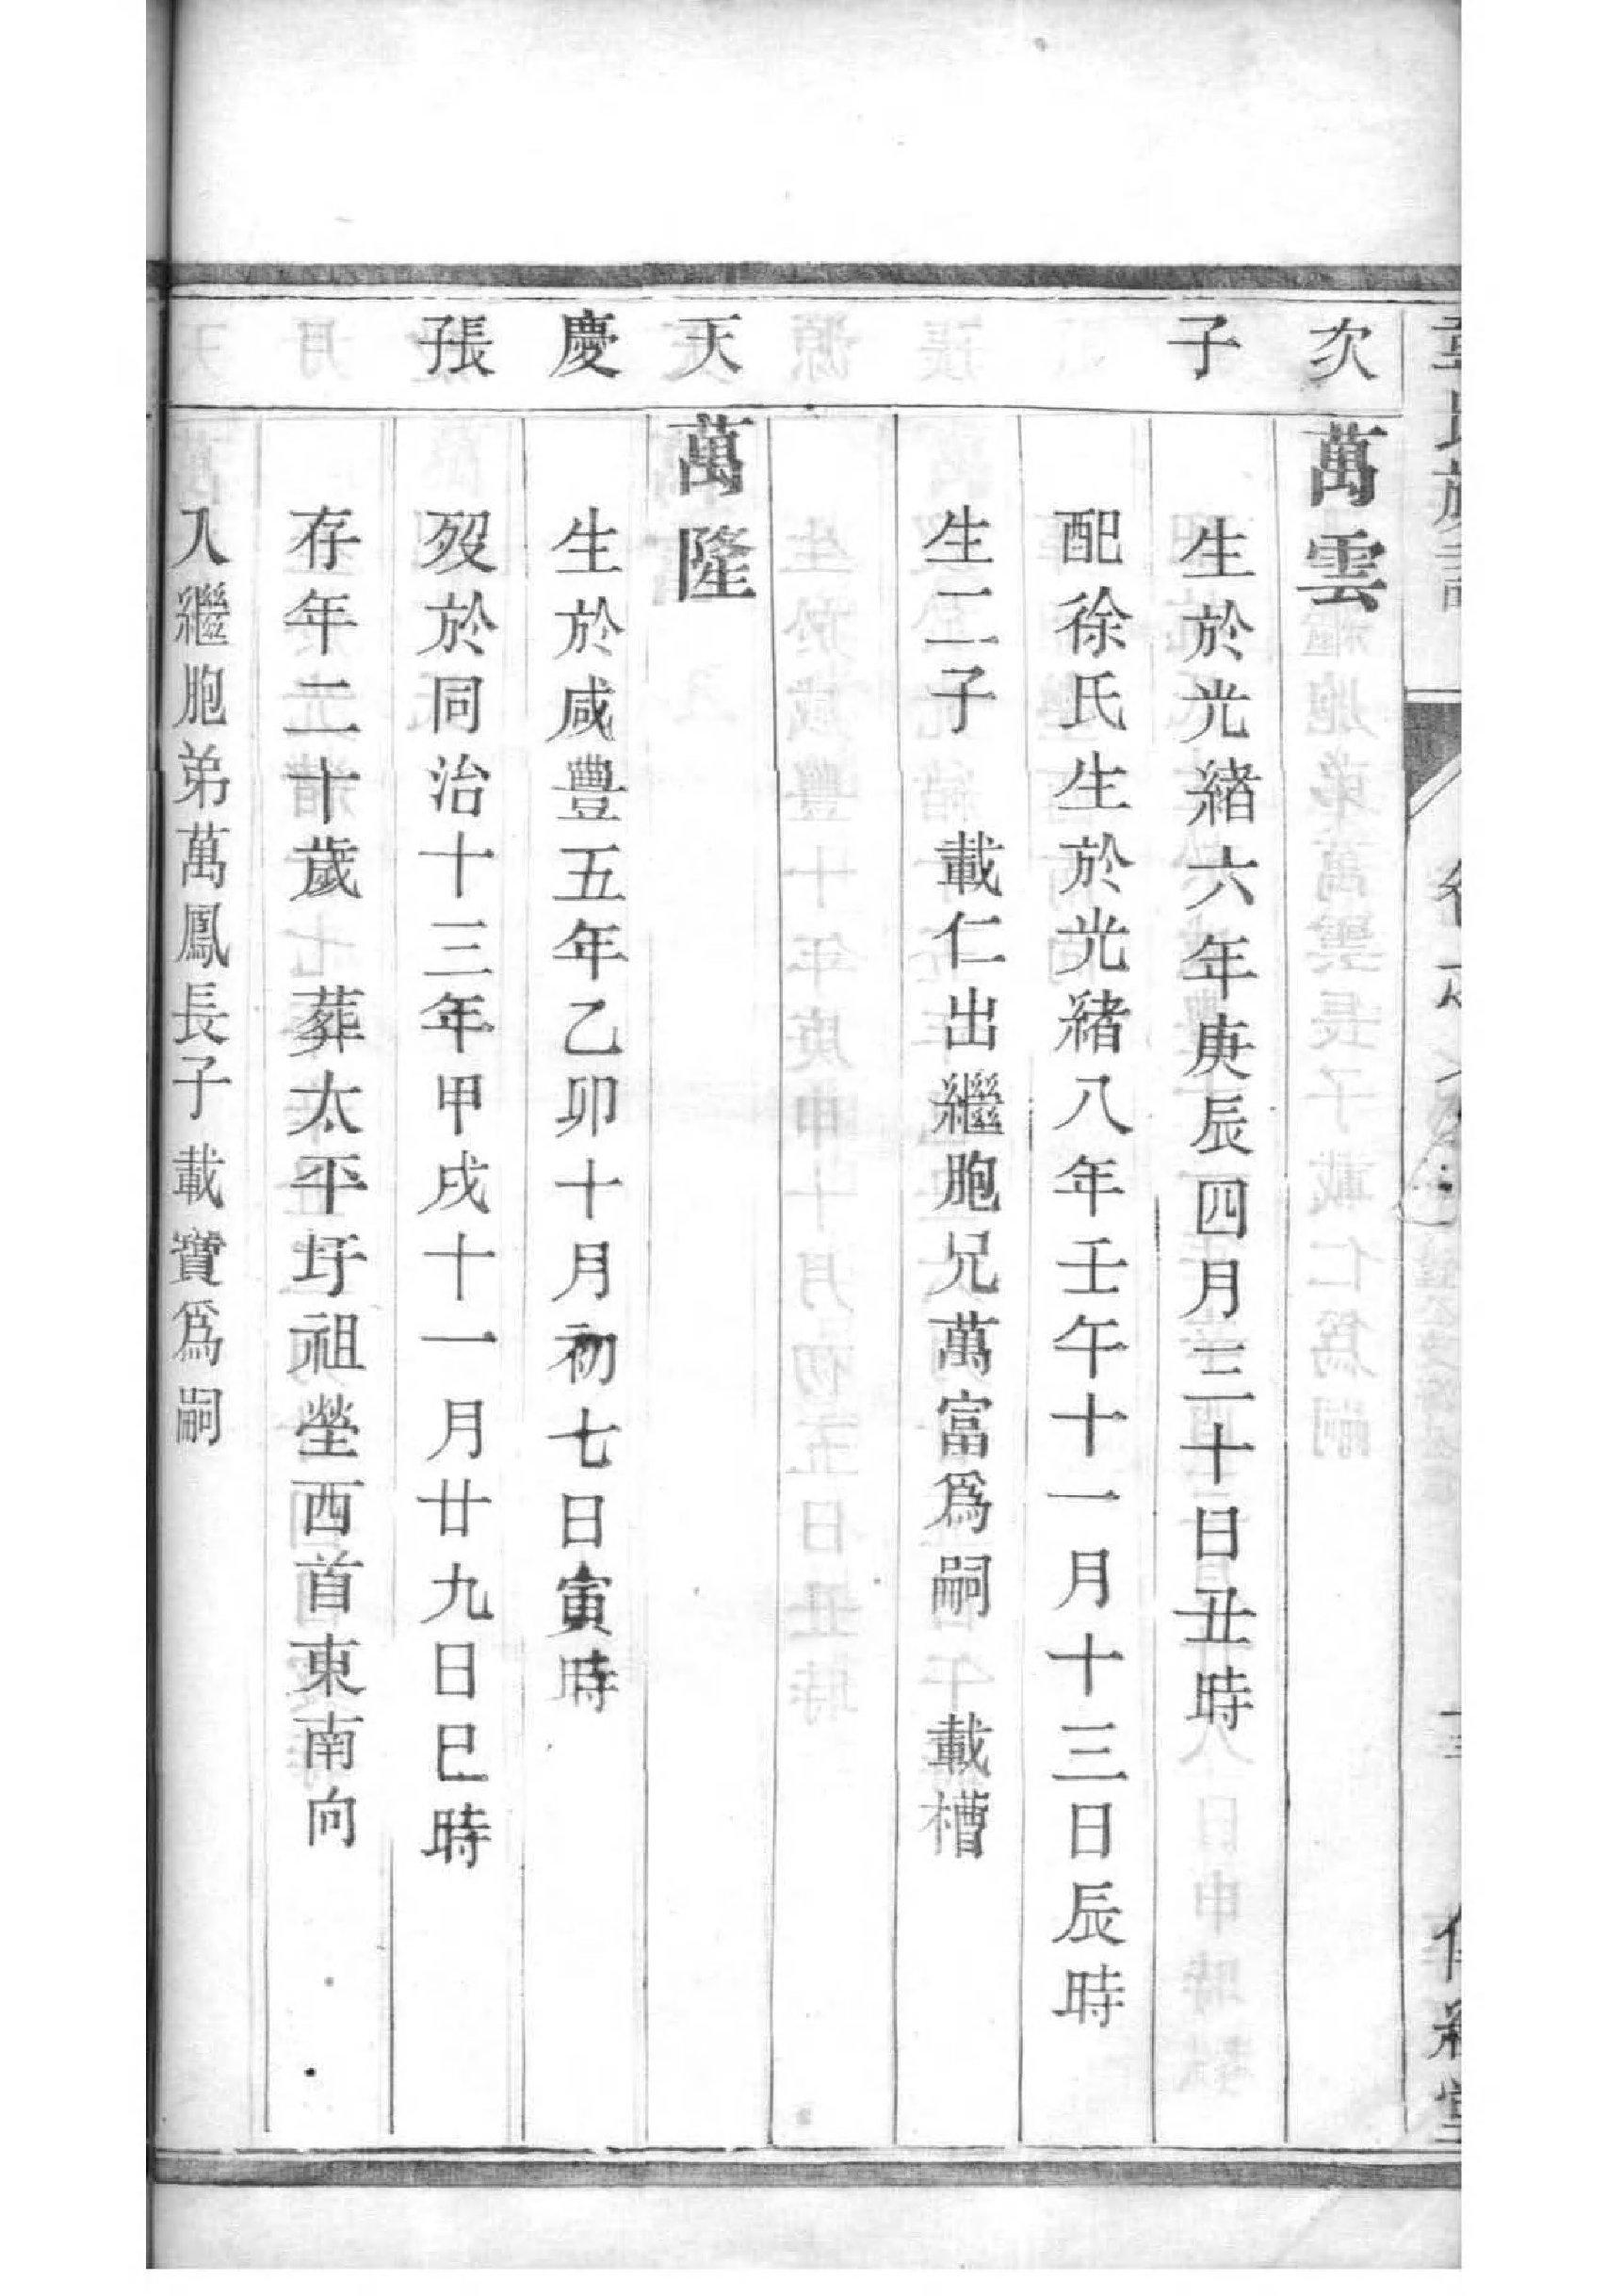 次
子
萬雲
生於光緒六年庚辰四月三十日丑時
配徐氏生於光緒八年壬午十一月十三日辰時
生二子 載仁出繼胞兄萬富爲嗣 載槽
天
慶
張子
萬隆
生於咸豐五年乙卯十月初七日寅時
歿於同治十三年甲戌十一月廿九日巳時
存年二十歲 葬太平圩祖塋西首東南向
入繼胞弟萬鳳長子載寶爲嗣